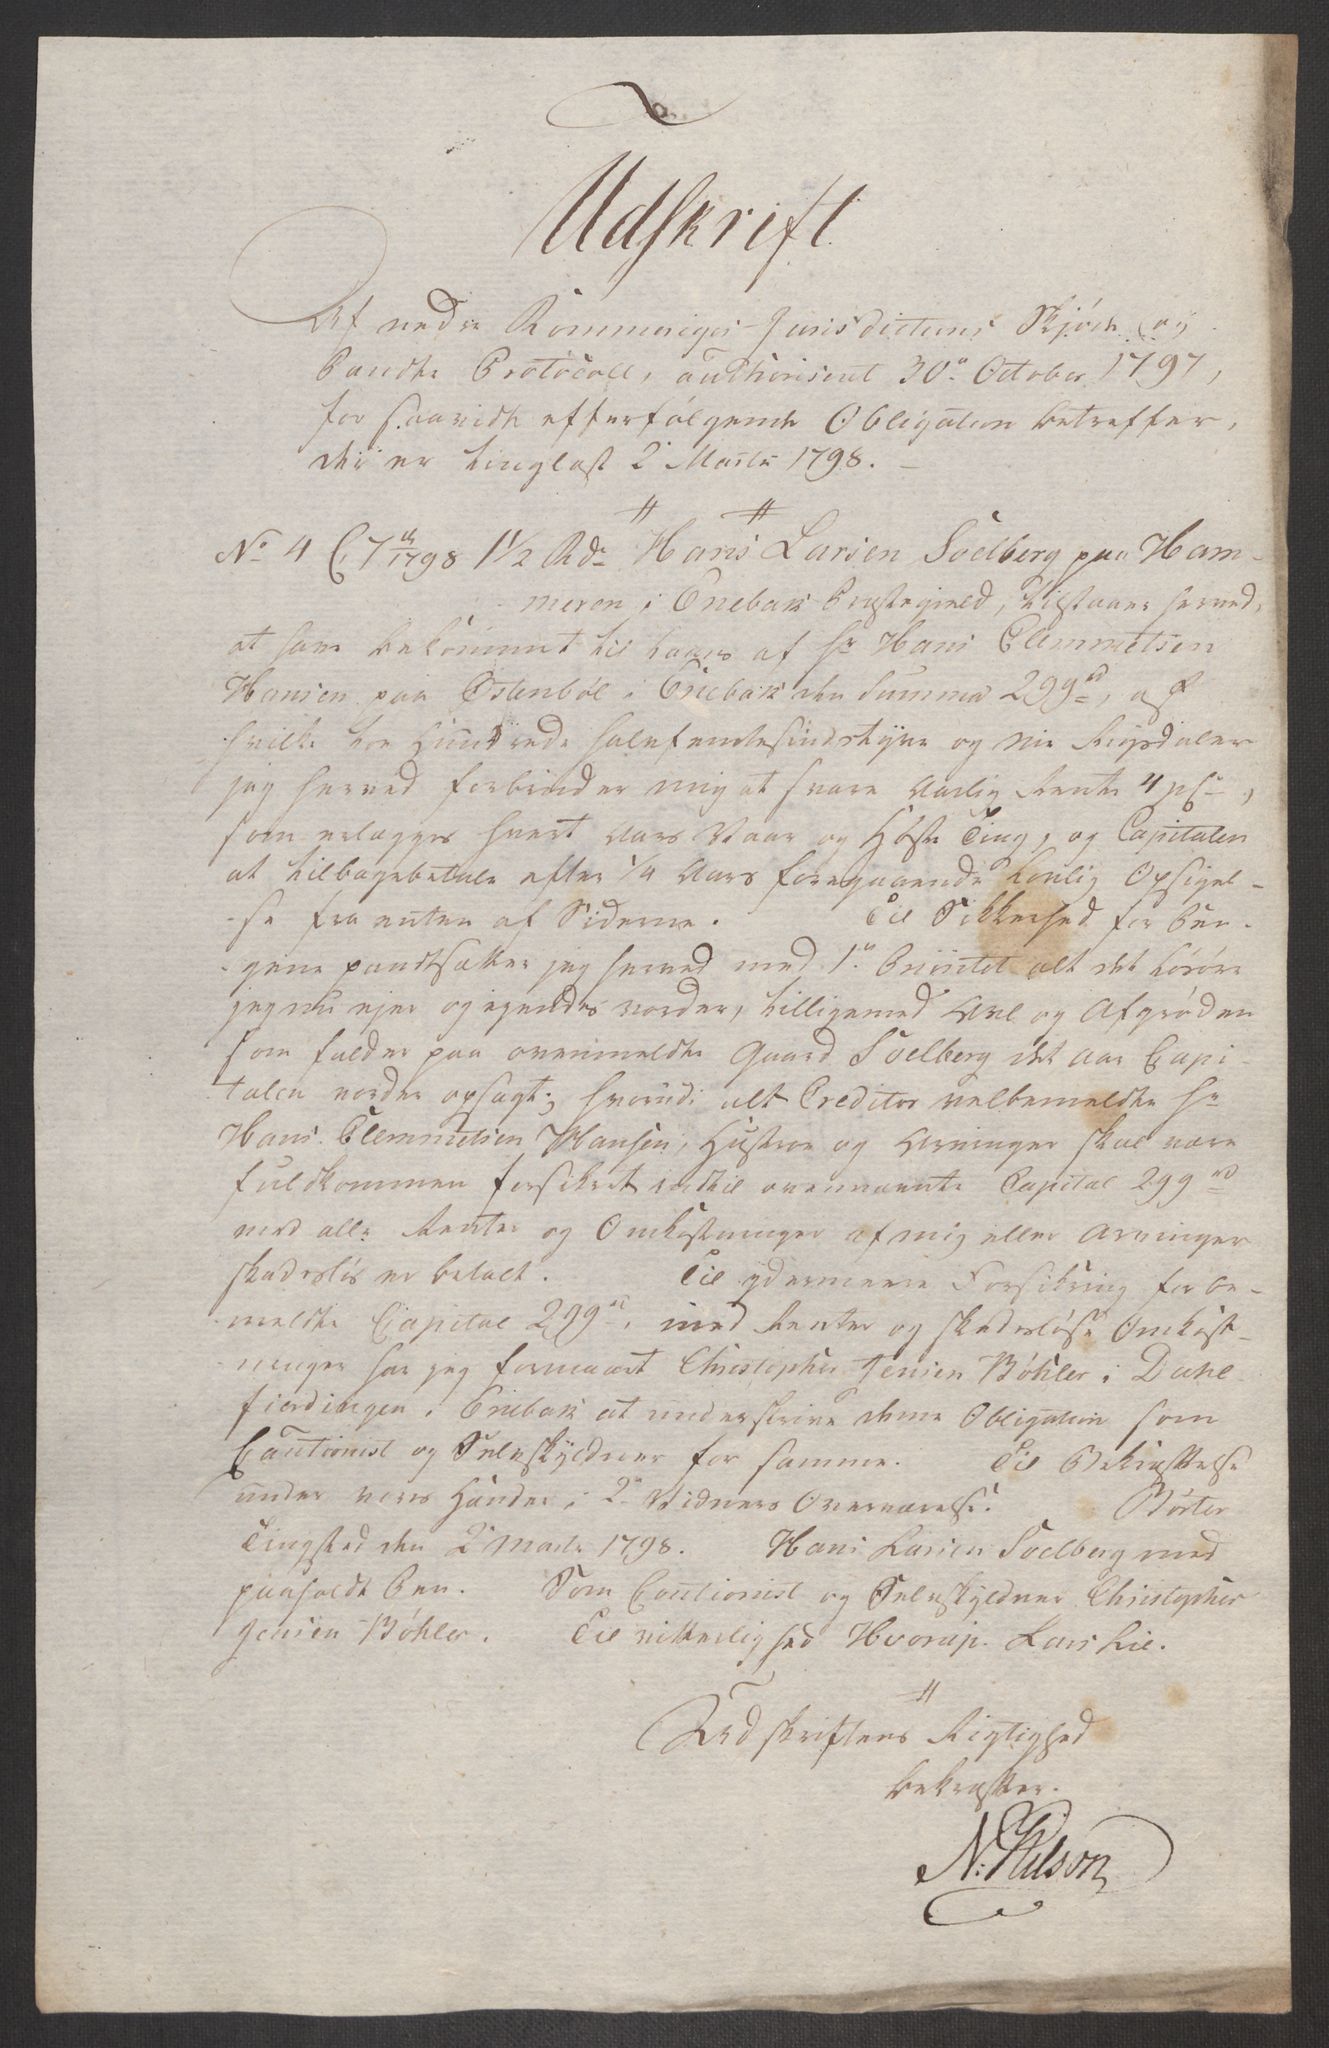 Udskrift
Af nedre Rommeriges Jurisdictions Skjøde og
Pandte Protocoll, authoriseret 30te October 1797,
for saavidt efterfølgende Obligation betreffer,
der er tinglæst 2 Martii 1798. –
No 4 C 7 1798 1 1/2 Rdr Hans Larsen Soelberg paa Ham-
meren i Enebak Præstegield, tilstaaer herved,
at have bekommet til Laans af Hr Hans Clemmetsen
Hansen paa Østenbøl i Enebak den Summa 299 rd, af
hvilke toe Hundrede halvfemtesindstyve og nie Rigsdaler
jeg herved forbinder mig at svare aarlig Rente 4 pCt,
som erlægges hvert Aars Vaar og Høste Ting, og Capitalen
at tilbagebetale efter 1/4 Aars foregaaende lovlig Opsigel-
-se fra enten af Siderne. Til Sikkerhed for Pen-
-gene pandtsætter jeg herved med 1te Prioritet alt det Løsøre
jeg nu ejer og ejendes vorder, tilligemed Avl og Afgrøden
som falder paa ovenmeldte Gaard Soelberg det Aar Capi-
talen vorder opsagt; hvorudi alt Creditor velbemeldte Hr
Hans Clemmetsen Hansen, Hustroe og Arvinger skal være
fuldkommen forsikret indtil ovennævnte Capital 299 rd
med alle Renter og Omkostninger af mig eller Arvinger
skadesløs er betalt. Til ydermeere Forsikring for be-
-meldte Capital 299 rd, med Renter og skadesløse Omkost-
-ninger har jeg formaaet Christopher Jensen Bøhler i Dahl-
fierdingen i Enebak at underskrive denne Obligation som
Cautionist og Selvskyldner for samme. Til Bekræftelse
under vores Hænder i 2de Vidners Overværelse. Børter
Tingsted den 2 Martii 1798. Hans Larsen Soelberg med
paaholdt Pen. Som Cautionist og Selvskyldner Christopher
Jensen Bøhler. Til vitterlighed Hvorup. Lars Lie.
Udskriftens Rigtighed
bekræfter.